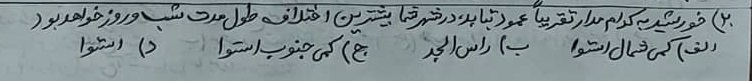 ۲۰) خورشید به کدام مدار تقریباً عمود بتابد، در شهر شما بیشترین اختلاف طول مدت شب و روز خواهد بود؟
الف) کمی شمال استوا ب) راس الجدی ج) کمی جنوب استوا د) استوا